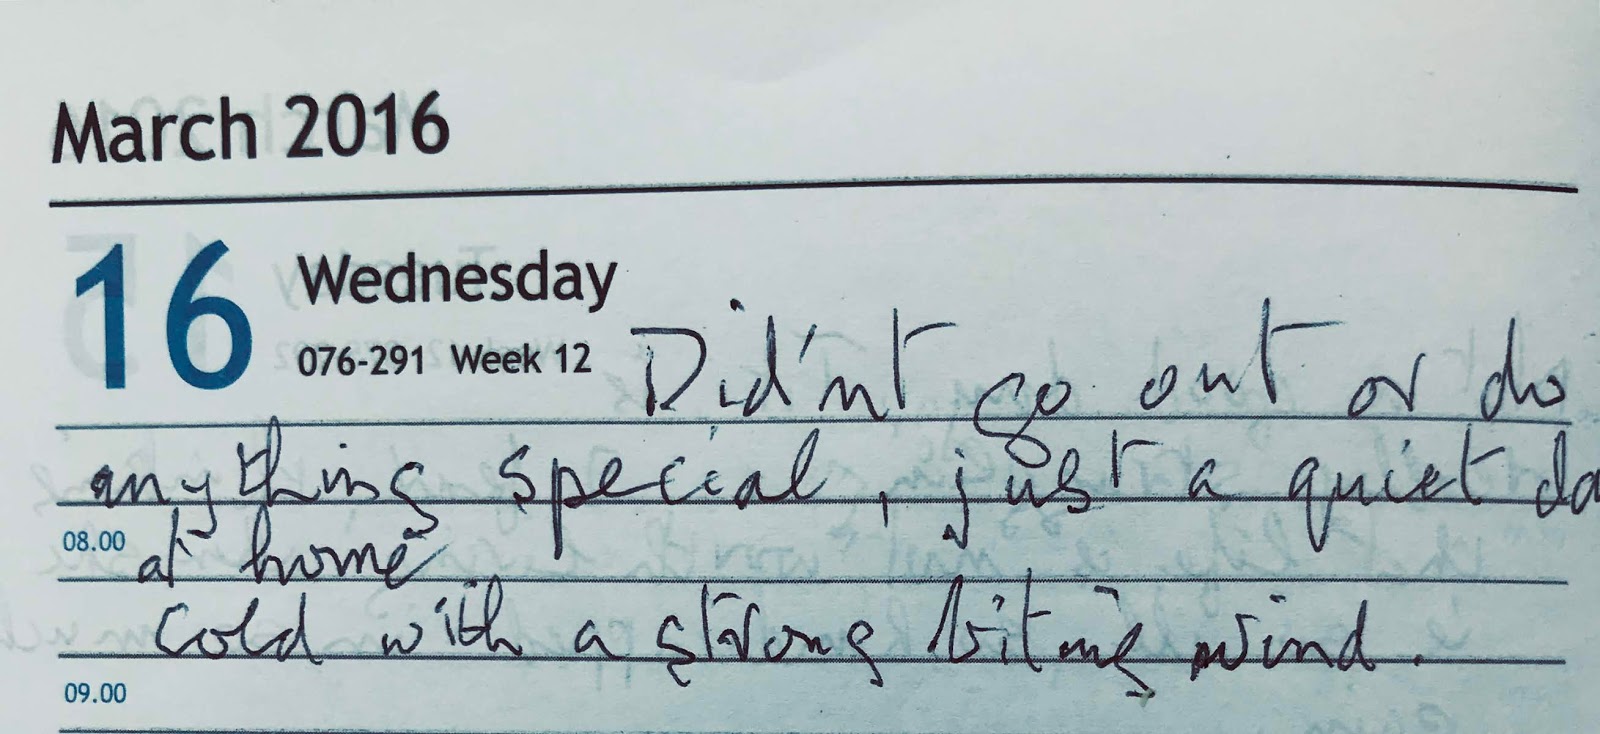 March 2016
16 Wednesday
076-291 Week 12
Did'nt go out or do
anything special, just a quiet da
08.00
at home
cold with a strong biting wind.
09.00